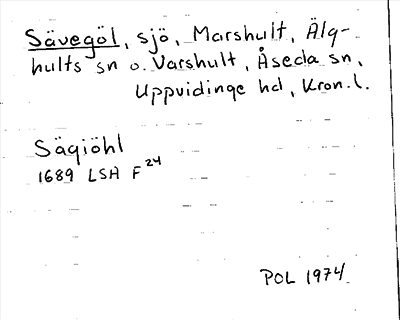 Sävegöl, sjö, Marshult, Älg-
hults sn o. Varshult, Åseda sn,
Uppvidinge hd, Kron.l.
Sägiöhl
1689 LSA F 24
POL 1974